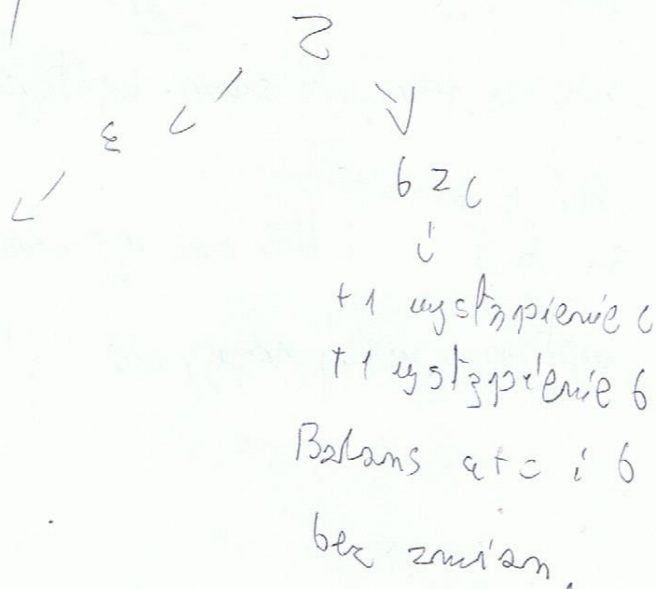 Z
ε
b Z c
i
+1 wystąpienie c
+1 wystąpienie b
Balans a+c i b
bez zmian.